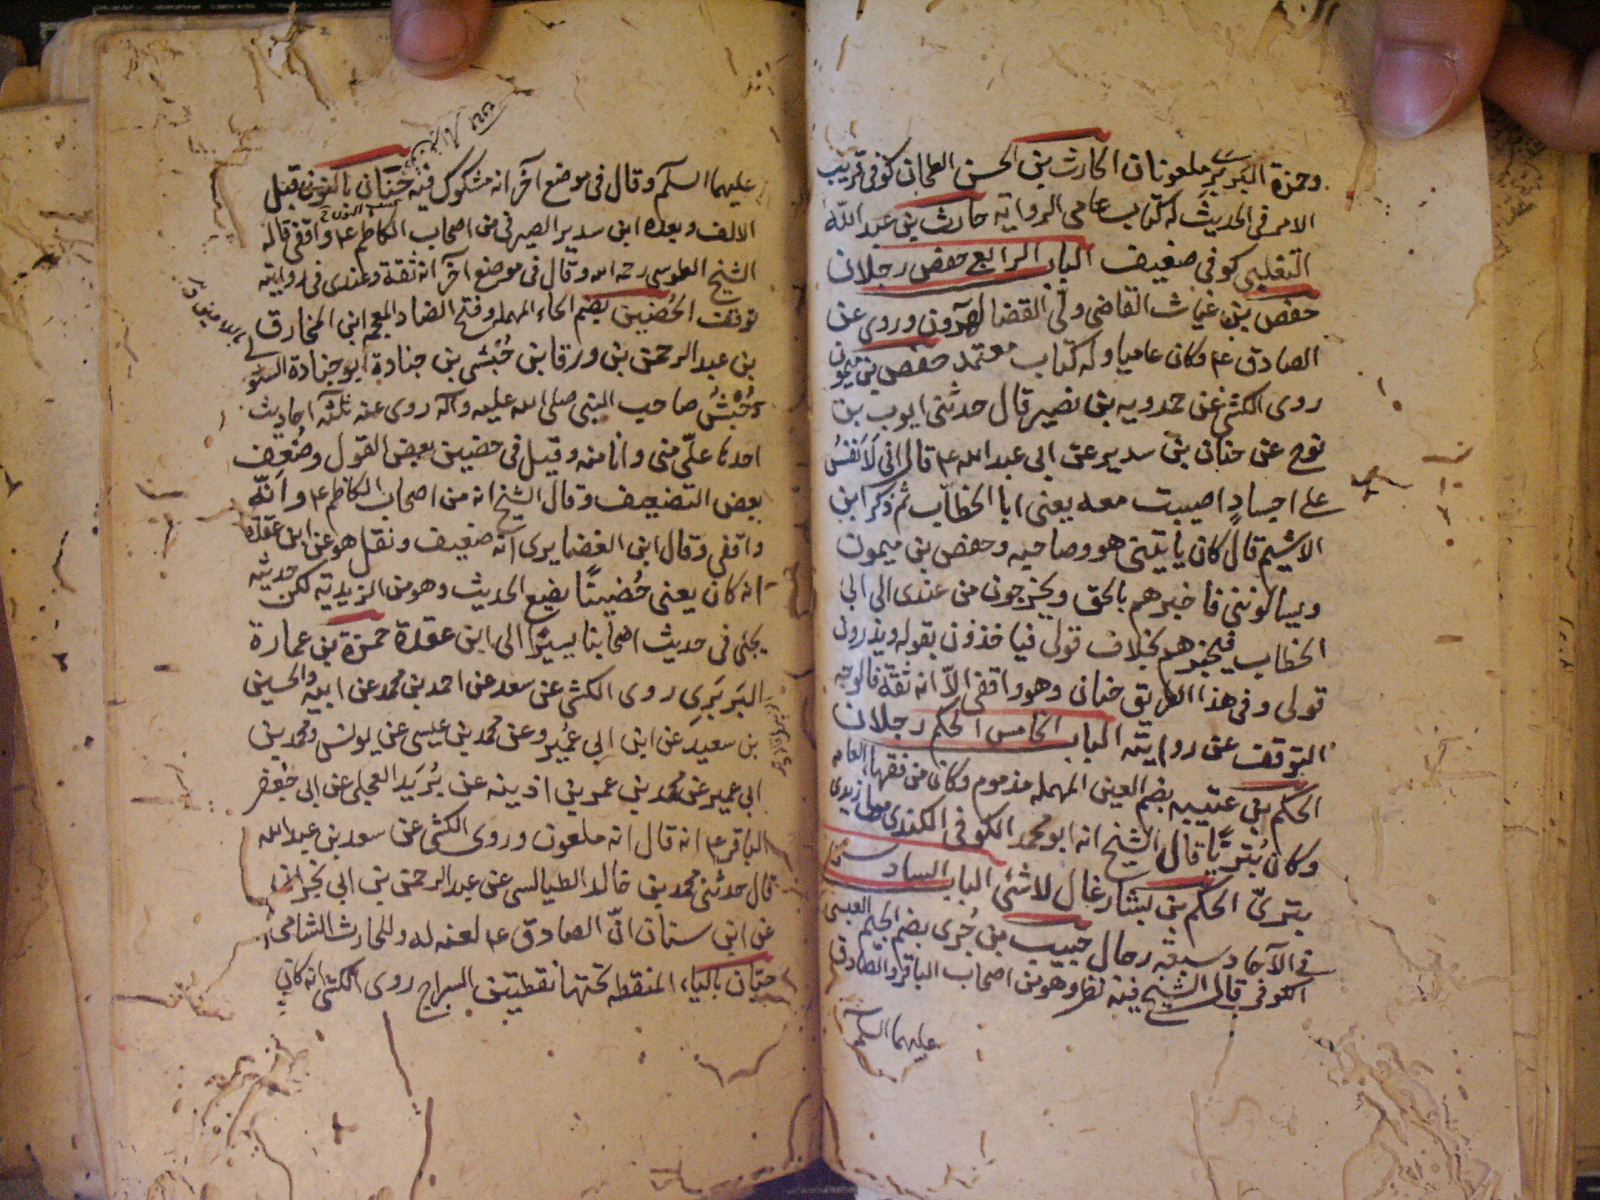 وحمزة البربري ملعونان الحارث بن الحسن الطحان كوفي قريب
الامر في الحديث له كتاب عامي الرواية حارث بن عبد الله
التغلبي كوفي ضعيف الباب الرابع حفص رجلان
حفص بن غياث القاضي ولي القضا لهرون وروى عن
الصادق ع وكان عاميا وله كتاب معتمد حفص بن ميمون
روى الكشي عن حمدويه بن نصير قال حدثني ايوب بن
نوح عن حنان بن سدير عن ابي عبد الله ع قال اني لَاَنفسُ
على اجسادٍ اصيبت معه يعني ابا الخطاب ثم ذكر ابن
الاشيم قال كان يأتيني هو وصاحبه وحفص بن ميمون
ويسالونني فاخبرهم بالحق ويخرجون من عندي الى ابي
الخطاب فيخبرهم بخلاف قولي فياخذون بقوله ويذرون
قولي وفي هذا الطريق حنان وهو واقفي الّا انه ثقة فالوجه
التوقف عن روايته الباب الخامس الحكم رجلان
الحكم بن عتيبه بضم العين المهمله مذموم وكان من فقهاء العامه
وكان بُتريًّا قال الشيخ انه ابو محمد الكوفي الكندي مولى زيدي
بتريّ الحكم بن بشار غال لا شئ الباب السادس
في الآحاد سبعة رجال حبيب بن جُرى بضم الجيم العبسي
الكوفي قال الشيخ فيه نظر وهو من اصحاب الباقر والصادق
عليهما السلم
عليهما السلم وقال في موضع آخر انه مشكوك فيه حَنَان بالنون قبل
الالف وبعده ابن سدير الصيرفي من اصحاب الكاظم ع واقفي قاله
الشيخ الطوسي رحمه الله وقال في موضع آخر انه ثقة وعندي في روايته
توقف الحُضَين بضم الحاء المهمله وفتح الضاد المعجم ابن المخارق
بن عبد الرحمن بن ورقا بن حُبشي بن جنادة ابو جنادة السلولي
وحُبشُ صاحب النبي صلى الله عليه وآله روى عنه ثلثة احاديث
احدها عليّ مني وانا منه وقيل في حضين بعض القول وضُعِف
بعض التضعيف وقال الشيخ انه من اصحاب الكاظم ع وانّه
واقفي وقال ابن الغضايري انه ضعيف ونقل هو عن ابن عقدة
انه كان يعني حُضينًا يضع الحديث وهو من الزيدية لكن حديثه
يجئ في حديث اصحابنا يسيرًا الى ابن عقدة حمزة بن عمارة
البَربَري روى الكشي عن سعد عن احمد بن محمد عن ابيه والحسين
بن سعيد عن ابن ابي عُمَير وعن محمد بن عيسى عن يونس ومحمد بن
ابي عمير عن محمد بن عمر بن اذينه عن بُرَيد العجلي عن ابي جعفر
الباقر ع انه قال انه ملعون وروى الكشي عن سعد بن عبد الله
قال حدثني محمد بن خالد الطيالسي عن عبد الرحمن بن ابي نجران
عن ابن سنان انّ الصادق ع لعنه له وللحارث الشامي
حيّان بالياء المنقطه تحتها نقطتين السراج روى الكشي انه كان